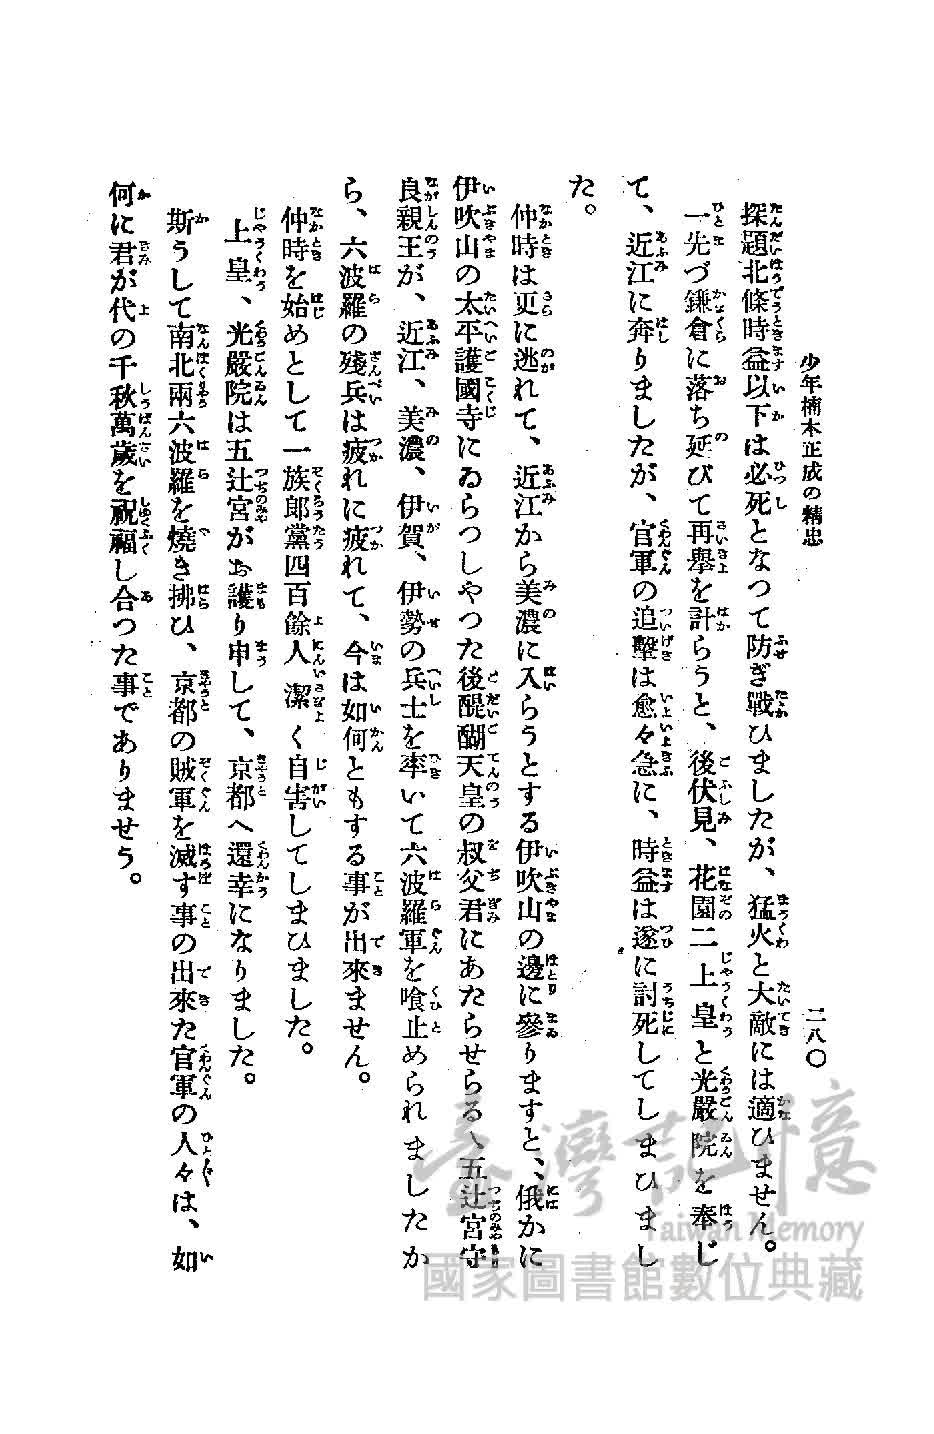 少年楠木正成の精忠
二八〇
探題北條時益以下は必死となつて防ぎ戰ひましたが、猛火と大敵には適ひません。
一先づ鎌倉に落ち延びて再擧を計らうと、後伏見、花園二上皇と光嚴院を奉じ
て、近江に奔りましたが、官軍の追擊は愈々急に、時益は遂に討死してしまひまし
た。
仲時は更に逃れて、近江から美濃に入らうとする伊吹山の邊に參りますと、俄かに
伊吹山の太平護國寺にゐらつしやつた後醍醐天皇の叔父君にあたらせらるゝ五辻宮守
良親王が、近江、美濃、伊賀、伊勢の兵士を率いて六波羅軍を喰止められましたか
ら、六波羅の殘兵は疲れに疲れて、今は如何ともする事が出來ません。
仲時を始めとして一族郎黨四百餘人潔く自害してしまひました。
上皇、光嚴院は五辻宮がお護り申して、京都へ還幸になりました。
斯うして南北兩六波羅を燒き拂ひ、京都の賊軍を滅す事の出來た官軍の人々は、如
何に君が代の千秋萬歲を祝福し合つた事でありませう。
臺灣記憶
Taiwan Memory
國家圖書館數位典藏